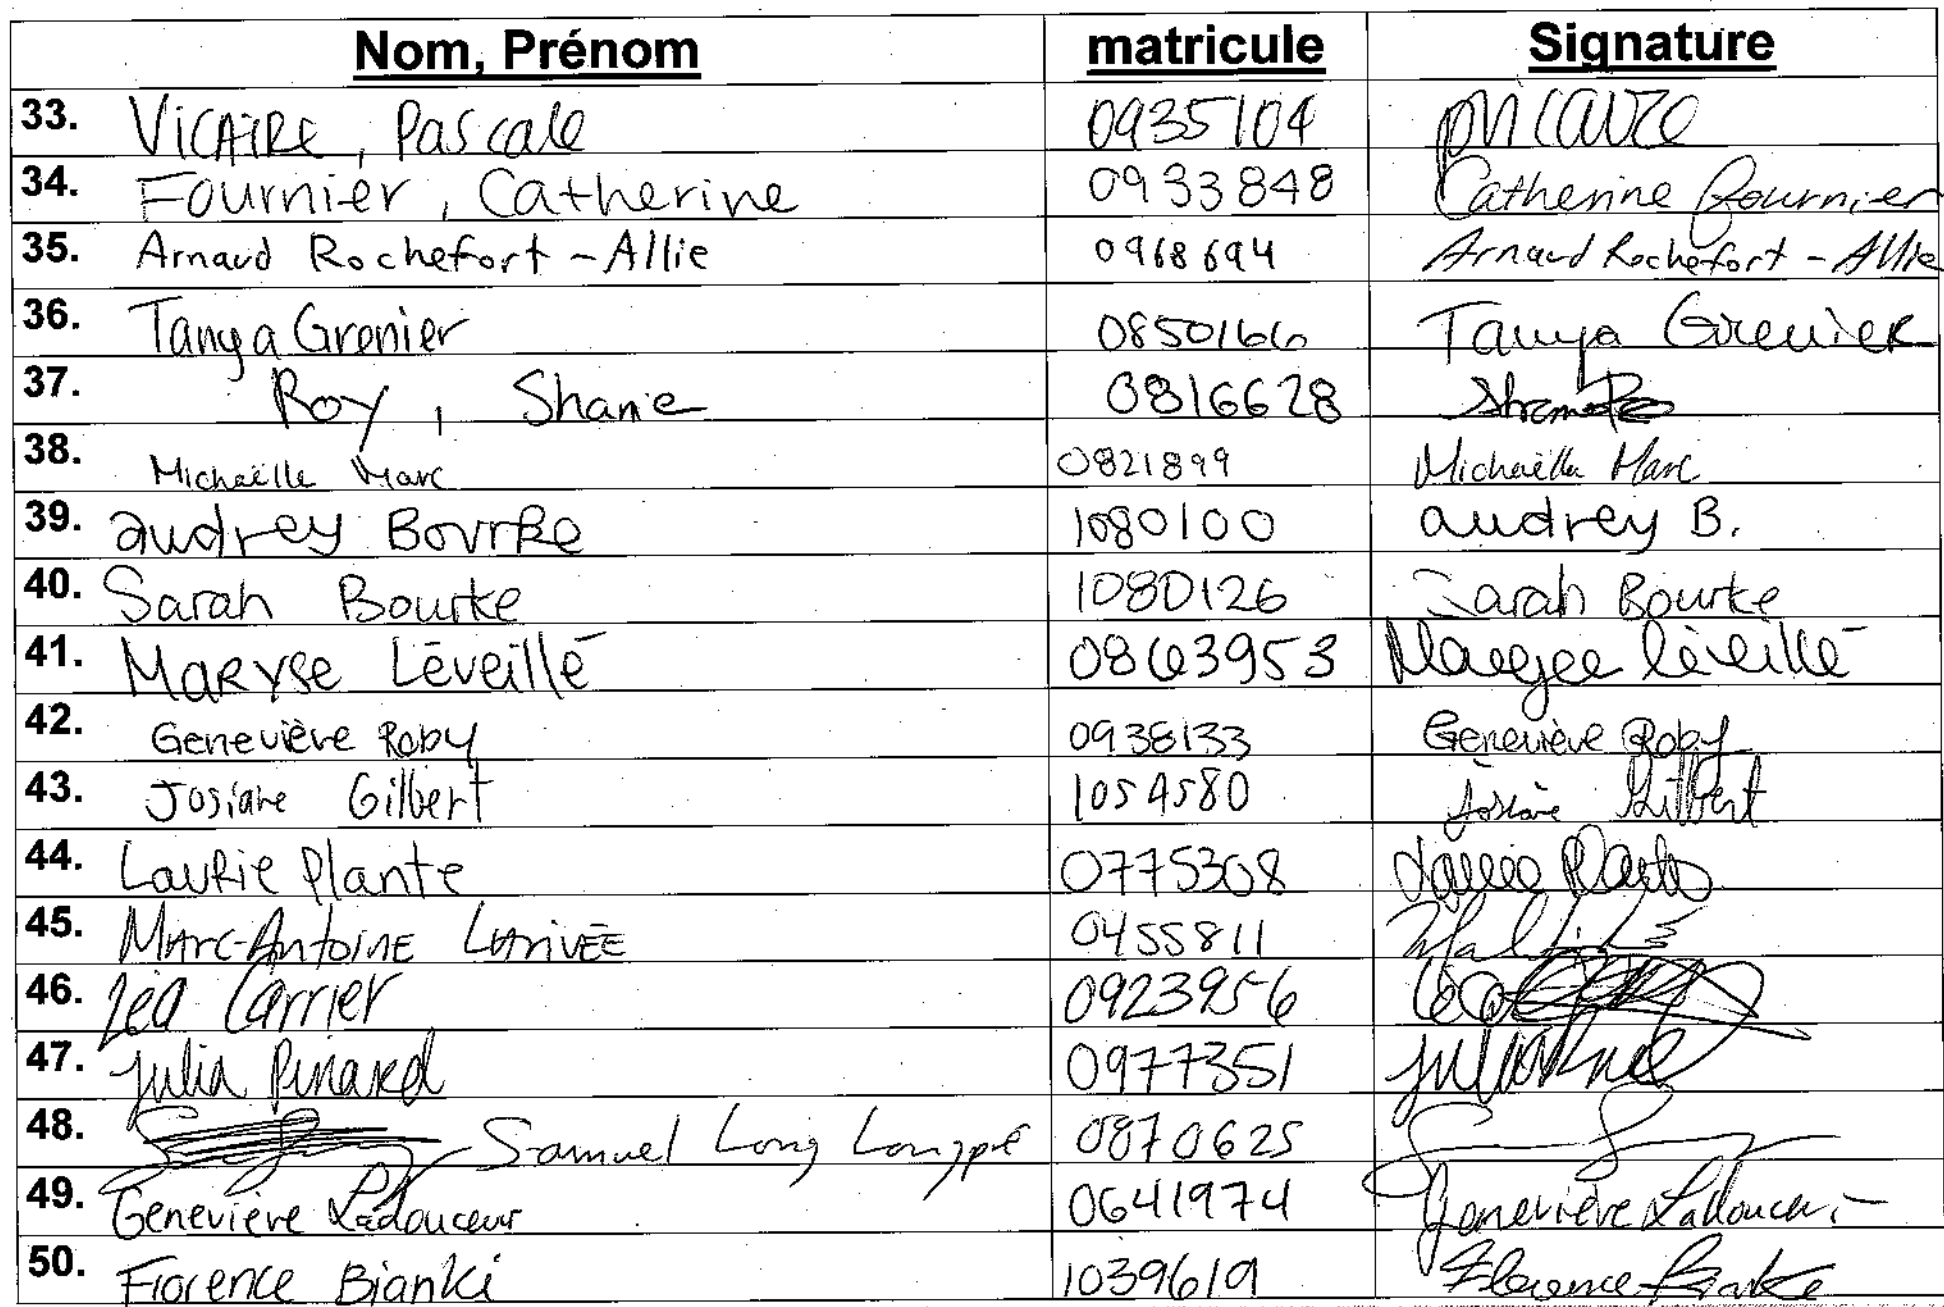 Nom, Prénom matricule Signature
33. VICAIRE, Pascale 0935104 PVICAIRE
34. Fournier, Catherine 0933848 Catherine Fournier
35. Arnaud Rochefort-Allie 0968694 Arnaud Rochefort-Allie
36. Tanya Grenier 0850166 Tanya Grenier
37. Roy, Shanie 0816628
38. Michaëlle Marc 0821899 Michaëlle Marc
39. audrey Bourke 1080100 audrey B.
40. Sarah Bourke 1080126 Sarah Bourke
41. MARYSE Léveillé 0863953 Maryse Léveillé
42. Geneviève Roby 0938133 Geneviève Roby
43. Josiane Gilbert 1054580 Josiane Gilbert
44. Laurie Plante 0775308 Laurie Plante
45. MARC-Antoine LARIVÉE 0455811
46. Léa Carrier 0923956 Léa
47. Julia Pinard 0977351 Julia Pinard
48. Samuel Long Longpré 0870625
49. Geneviève Ladouceur 0641974 Geneviève Ladouceur
50. Florence Bianki 1039619 Florence Bianki